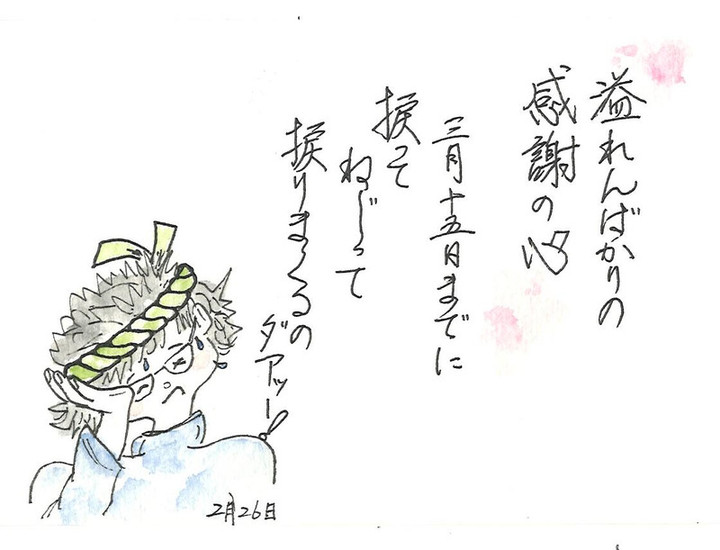 溢れんばかりの
感謝の心
三月十五日までに
捩って
ねじって
捩りまくるの
ダアッー!
2月26日